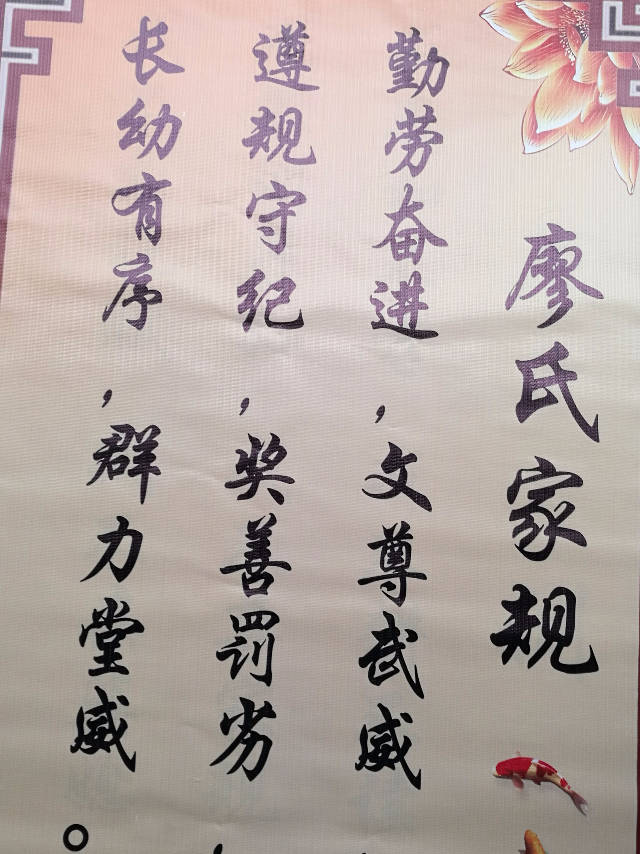 廖氏家规
勤劳奋进，文尊武威，
遵规守纪，奖善罚劣，
长幼有序，群力堂威。